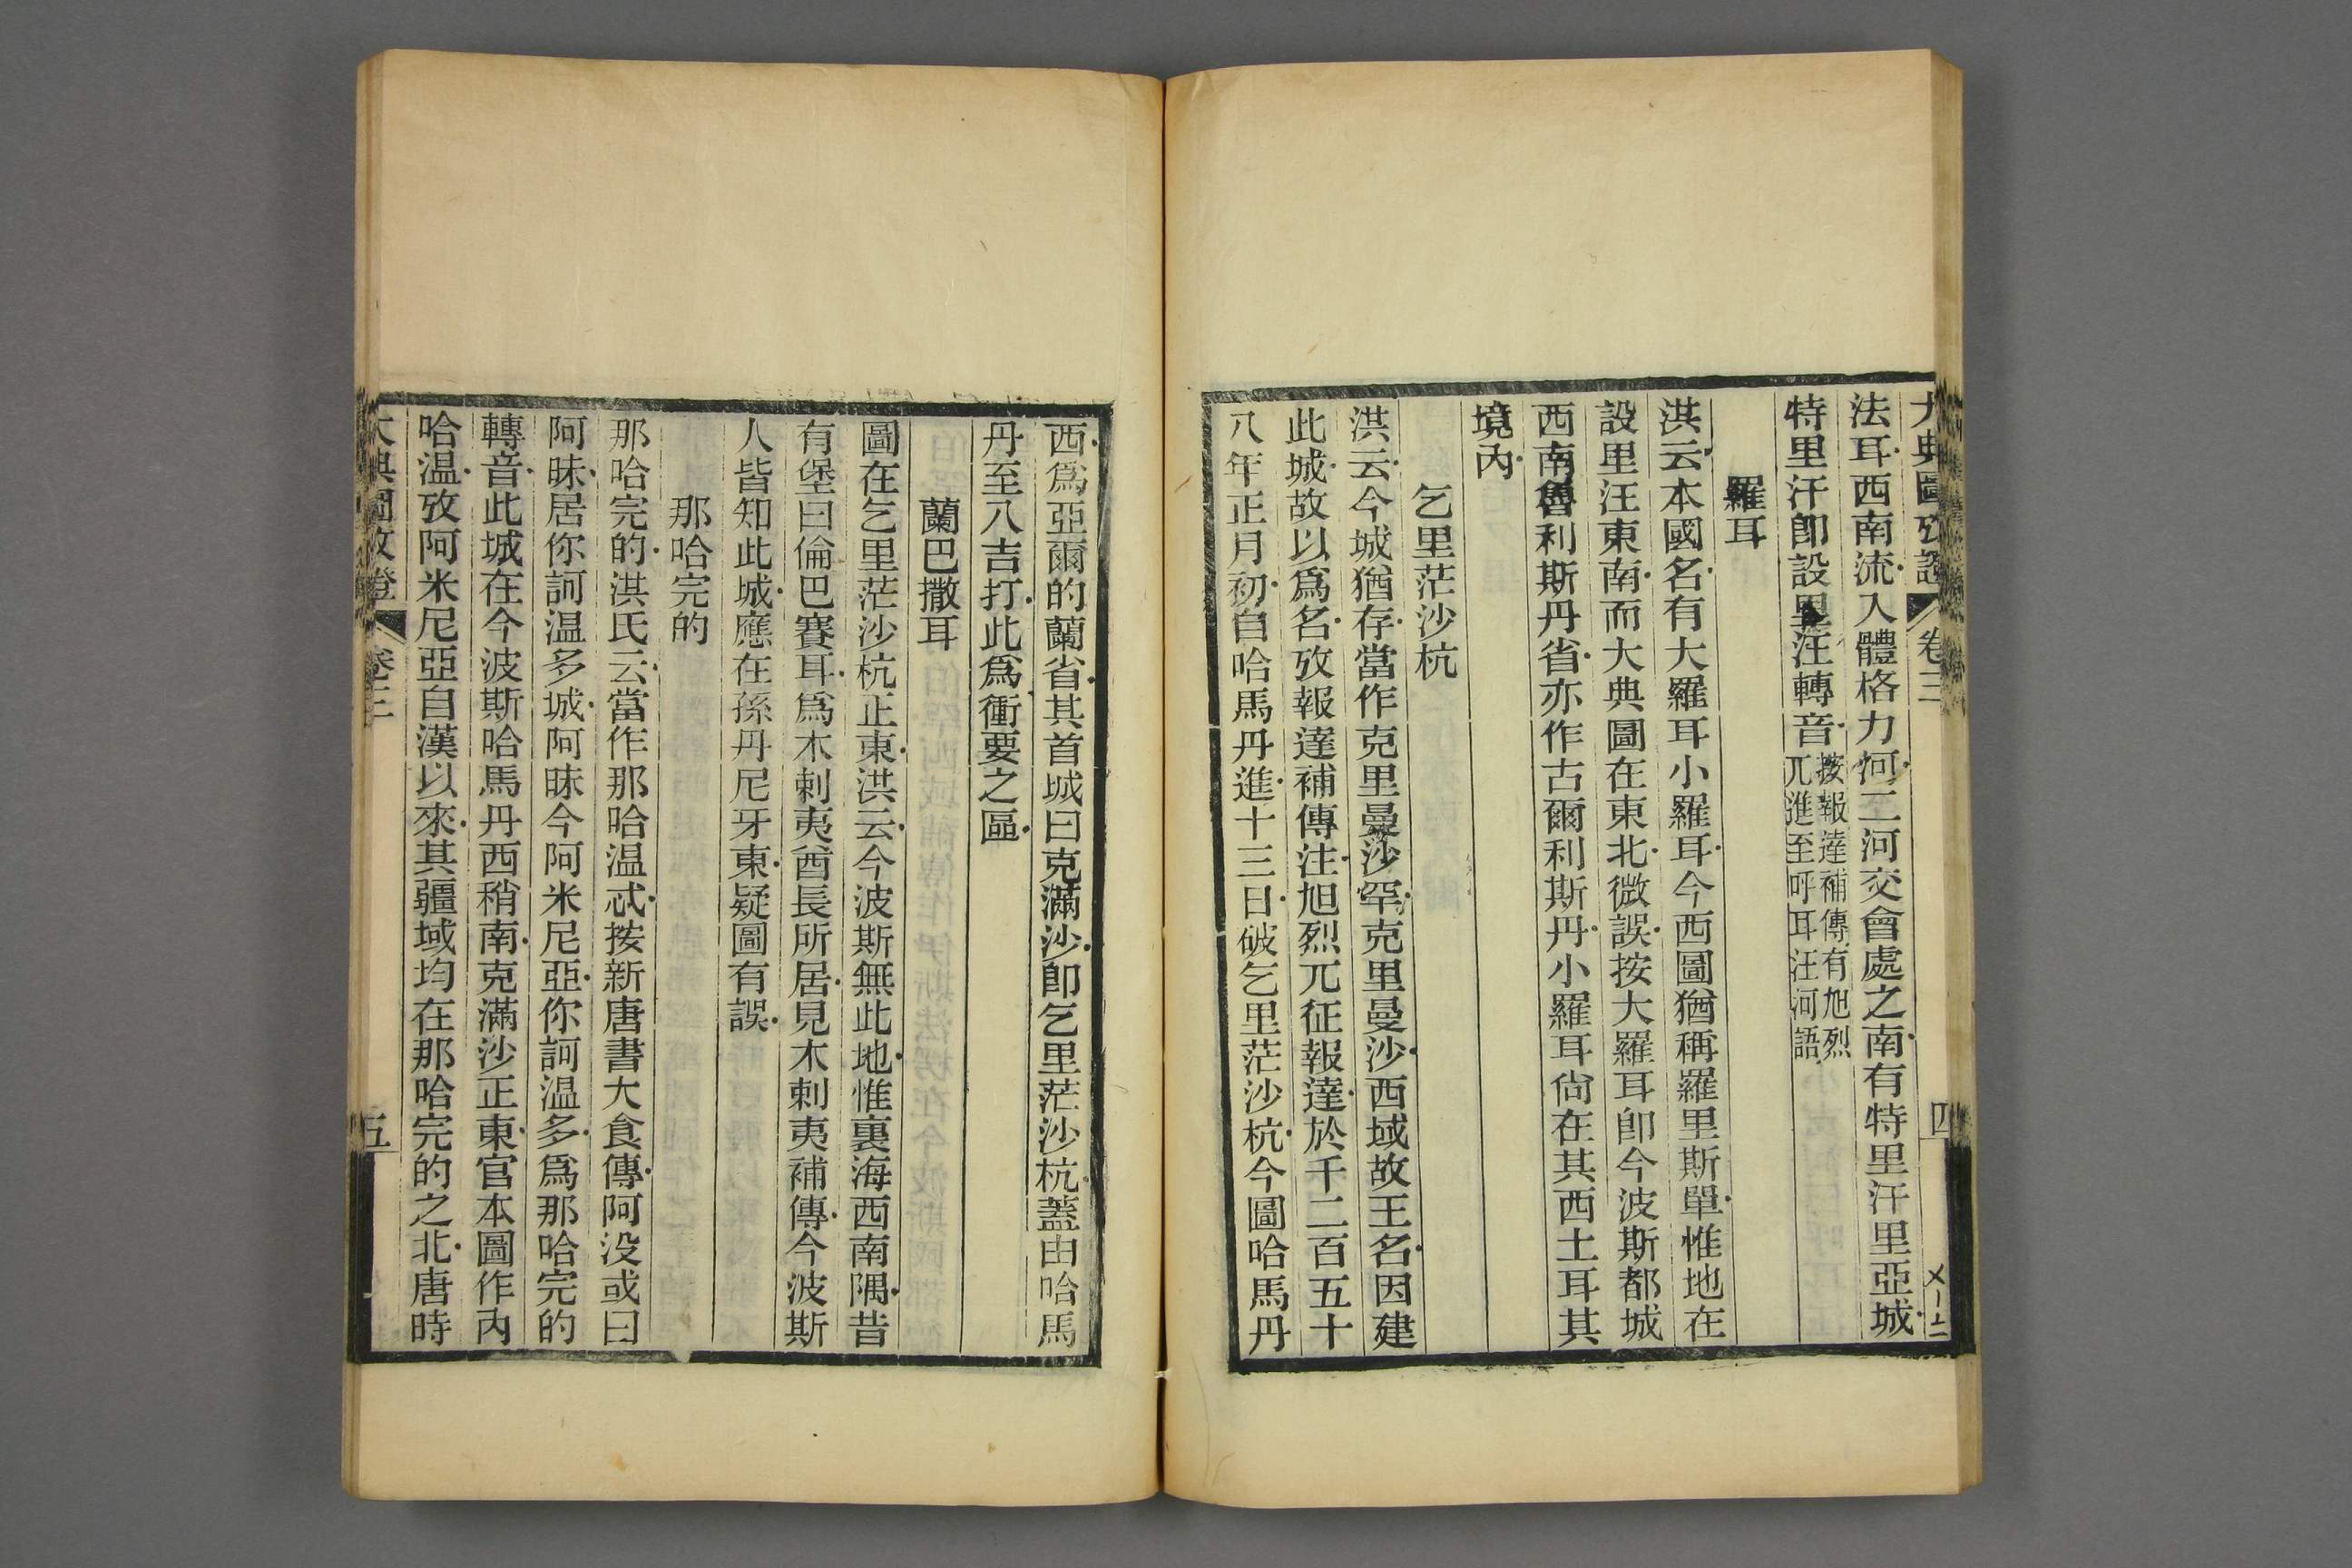 大典圖攷證 卷三 四
法耳西南流入體格力河二河交會處之南有特里汗里亞城
特里汗卽設里汪轉音按報達補傳有旭烈
兀進至呼耳汪河語
羅耳
洪云本國名有大羅耳小羅耳今西圖猶稱羅里斯單惟地在
設里汪東南而大典圖在東北微誤按大羅耳卽今波斯都城
西南魯利斯丹省亦作古爾利斯丹小羅耳尙在其西土耳其
境內
乞里茫沙杭
洪云今城猶存當作克里曼沙罕克里曼沙西域故王名因建
此城故以爲名攷報達補傳注旭烈兀征報達於千二百五十
八年正月初自哈馬丹進十三日破乞里茫沙杭今圖哈馬丹
西爲亞爾的蘭省其首城曰克滿沙卽乞里茫沙杭蓋由哈馬
丹至八吉打此爲衝要之區
蘭巴撒耳
圖在乞里茫沙杭正東洪云今波斯無此地惟裏海西南隅昔
有堡曰倫巴賽耳爲木剌夷酋長所居見木剌夷補傳今波斯
人皆知此城應在孫丹尼牙東疑圖有誤
那哈完的
那哈完的洪氏云當作那哈温忒按新唐書大食傳阿没或曰
阿昧居你訶温多城阿昧今阿米尼亞你訶温多爲那哈完的
轉音此城在今波斯哈馬丹西稍南克滿沙正東官本圖作內
哈温攷阿米尼亞自漢以來其疆域均在那哈完的之北唐時
大典圖攷證 卷三 五